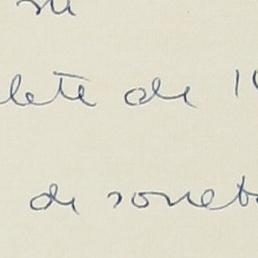 su
lete de 1
de soneto